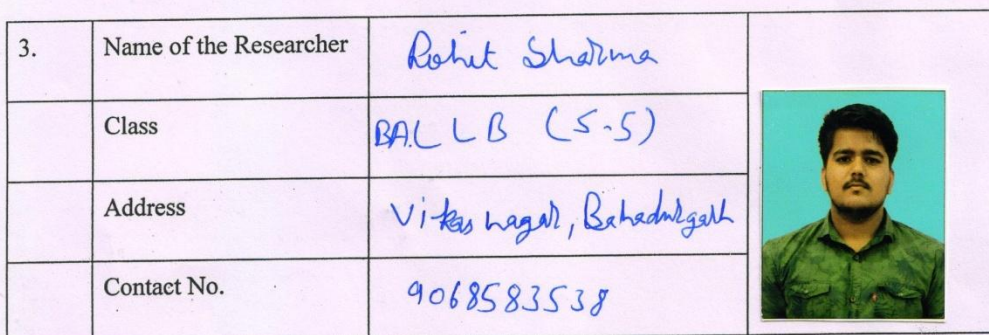 3. Name of the Researcher Rohit Sharma
Class BALLB (5.5)
Address Vikas nagar, Bahadurgarh
Contact No. 9068583538